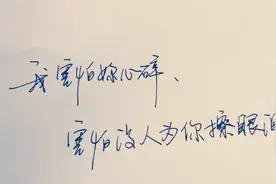 我害怕妳心碎、
害怕没人为你擦眼泪